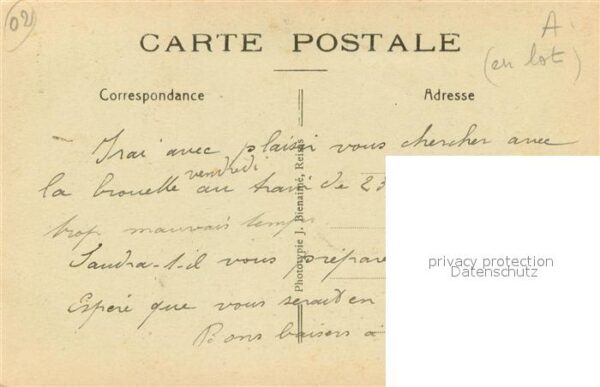 02
A.
(en lot)
CARTE POSTALE
Correspondance
Adresse
Irai avec plaisir vous chercher avec
vendredi
la brouette au train de 23
trop mauvais temps
Faudra-t-il vous prépare
Espère que vous serait en
Bons baisers à
Phototypie J. Bienaimé, Reims
privacy protection
Datenschutz